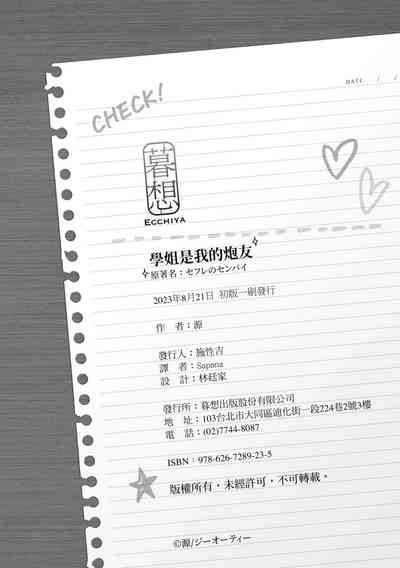 DATE / /
CHECK!
暮想
ECCHIYA
學姐是我的炮友
原著名：セフレのセンパイ
2023年8月21日 初版一刷發行
作　者：源
發行人：施性吉
譯　者：Sapana
設　計：林廷家
發行所：暮想出版股份有限公司
地　址：103台北市大同區迪化街一段224巷2號3樓
電　話：(02)7744-8087
ISBN：978-626-7289-23-5
版權所有，未經許可，不可轉載。
©源/ジーオーティー